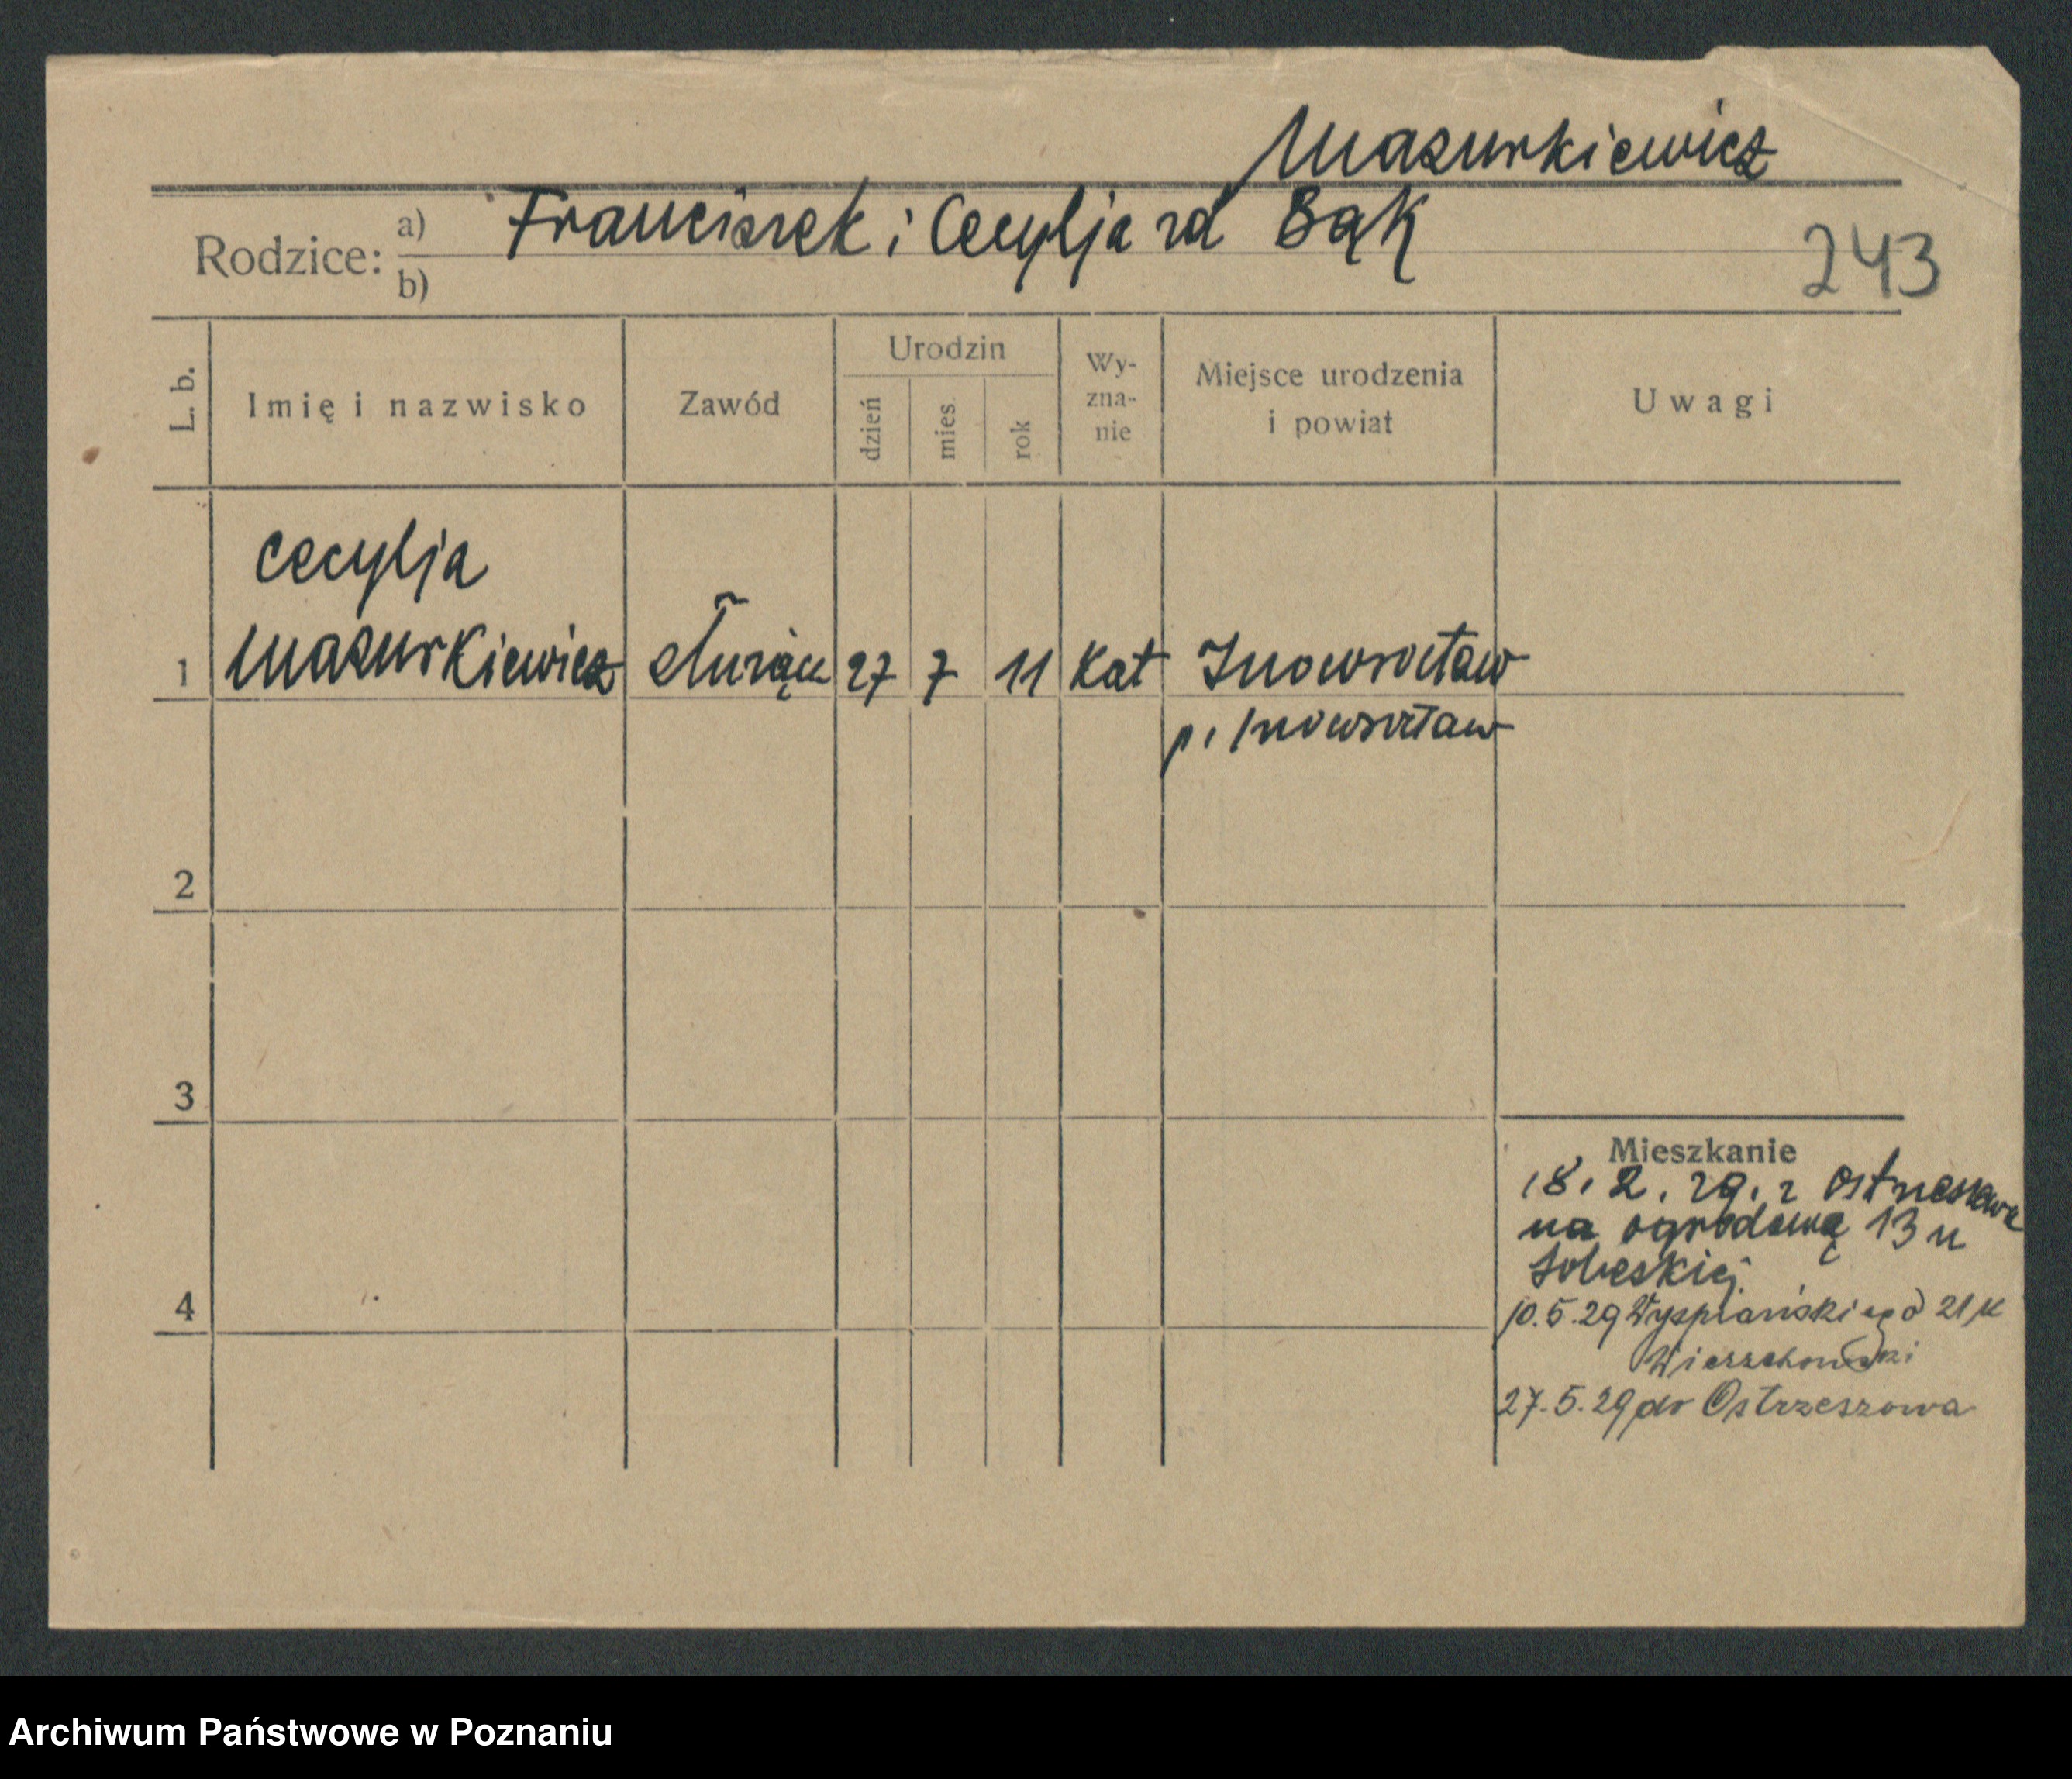 Mazurkiewicz
Rodzice: a) Franciszek i Cecylja zd Bąk
b)
243
L. b. Imię i nazwisko Zawód Urodzin dzień mies. rok Wy-zna-nie Miejsce urodzenia i powiat Uwagi
Cecylja
1 Mazurkiewicz służąca 27 7 11 kat Inowrocław
p. Inowrocław
2
3
Mieszkanie
18.2.29. z Ostrzeszowa
na ogrodową 13 u
Sobeskiej
4
10.5.29 Wyspiańskiego 21 u
27.5.29 do Ostrzeszowa
Archiwum Państwowe w Poznaniu